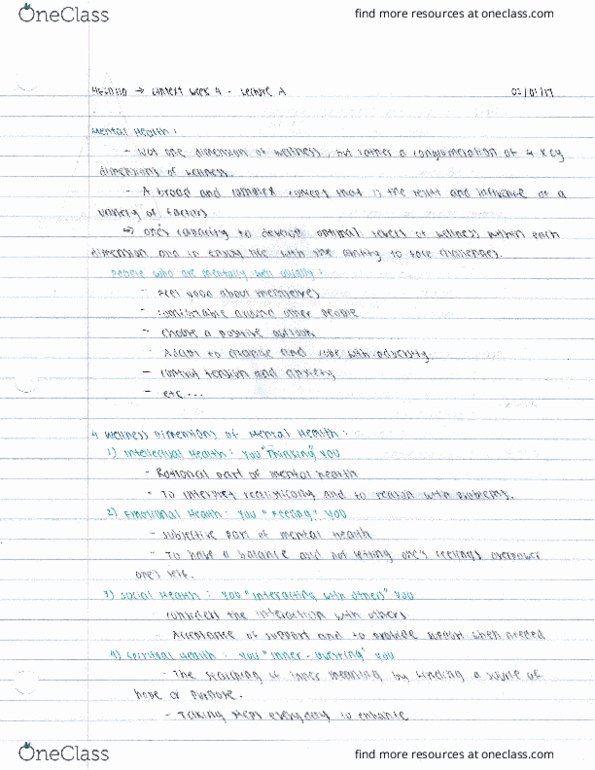 OneClass
find more resources at oneclass.com
→ Context Week 4 - Lecture A
Mental Health:
- Not one dimension of wellness, but rather a conglomeration of 4 key
dimensions of wellness.
- A broad and complex concept that is the result and influence of a
variety of factors
→ one's capacity to develop optimal levels of wellness within each
dimension and to enjoy life with the ability to face challenges.
People who are mentally well usually:
- Feel good about themselves
- comfortable around other people
- choose a positive outlook
Adapt to change and cope with adversity
- control tension and anxiety
- etc...
4 Wellness Dimensions of Mental Health:
1) Intellectual Health: You "Thinking" You
- Rational part of mental health
- To interpret realistically and to reason with problems.
2) Emotional Health: You "Feeling" You
- subjective part of mental health
- To have a balance and not letting one's feelings overpower
one's self.
3) Social Health: You "interacting with others" You
- considers the interaction with others
Acceptance of support and to provide support when needed
4) Spiritual Health: You "inner-questing" You
- The searching of inner meaning by finding a sense of
hope or purpose.
- Taking steps everyday to enhance
OneClass
find more resources at oneclass.com